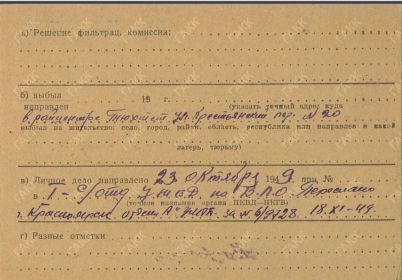 а) Решение фильтрац. комиссии:
б) выбыл
направлен 19 г.
(указать точный адрес куда
в райцентре Тюхтет ул. Крестьянский пер. № 20
выбыл на жительство: село, город, район, область, республика или направлен в какой
лагерь, тюрьму)
в) Личное дело направлено 23 октября 1949 при №
в 1-
(точное название органа НКВД—НКГБ)
г. Красноярск отдел "А" за № 6/9728 18.XI-49
г) Разные отметки